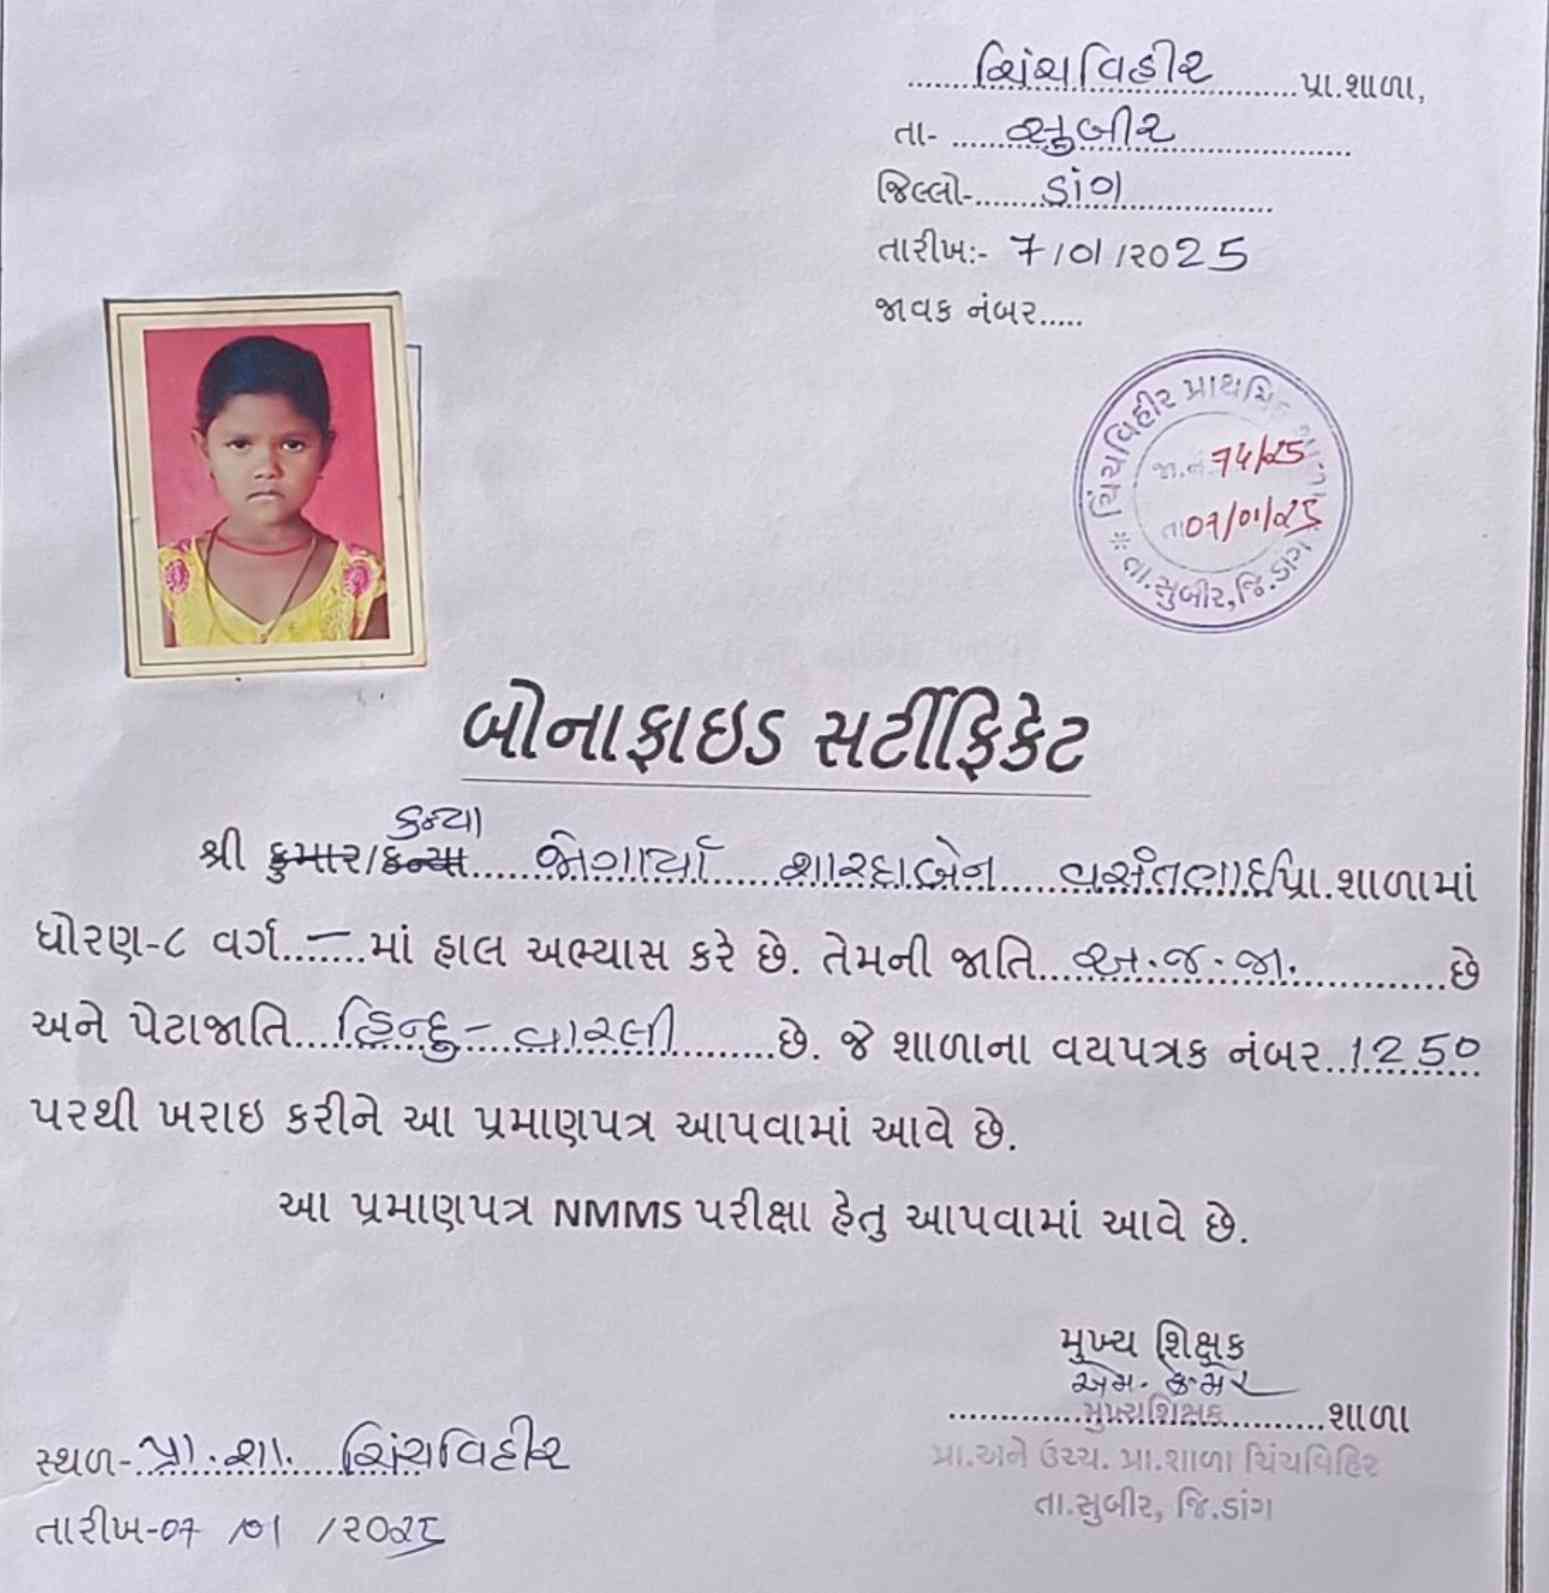 ચિંચવિહીર પ્રા.શાળા,
તા- સુબીર
જિલ્લો- ડાંગ
તારીખ:- 7/01/2025
જાવક નંબર.....
ચિંચવિહીર પ્રાથમિક
જા.નં. 74/25
તા 07/01/25
* તા.સુબીર, જિ.ડાંગ
બોનાફાઇડ સર્ટીફિકેટ
કન્યા
શ્રી કુમાર/કન્યા જોગાર્યા શારદાબેન વસંતભાઈ પ્રા.શાળામાં
ધોરણ-૮ વર્ગ.....–...માં હાલ અભ્યાસ કરે છે. તેમની જાતિ અ.જ.જા. છે
અને પેટાજાતિ હિન્દુ - વારલી છે. જે શાળાના વયપત્રક નંબર 1250
પરથી ખરાઇ કરીને આ પ્રમાણપત્ર આપવામાં આવે છે.
આ પ્રમાણપત્ર NMMS પરીક્ષા હેતુ આપવામાં આવે છે.
મુખ્ય શિક્ષક
મુખ્યશિક્ષક શાળા
પ્રા.અને ઉચ્ચ. પ્રા.શાળા ચિંચવિહિર
તા.સુબીર, જિ.ડાંગ
સ્થળ- પ્રા.શા. ચિંચવિહીર
તારીખ-07 /01 /૨૦૨૫